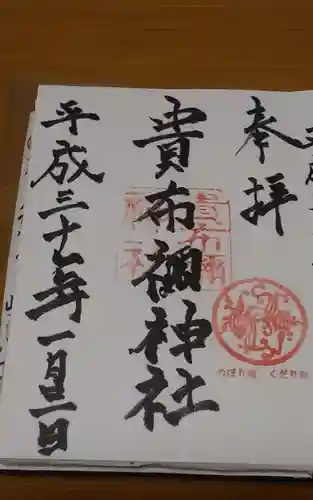 奉拝
貴布禰神社
平成三十一年一月二日
のぼり龍 くだり龍